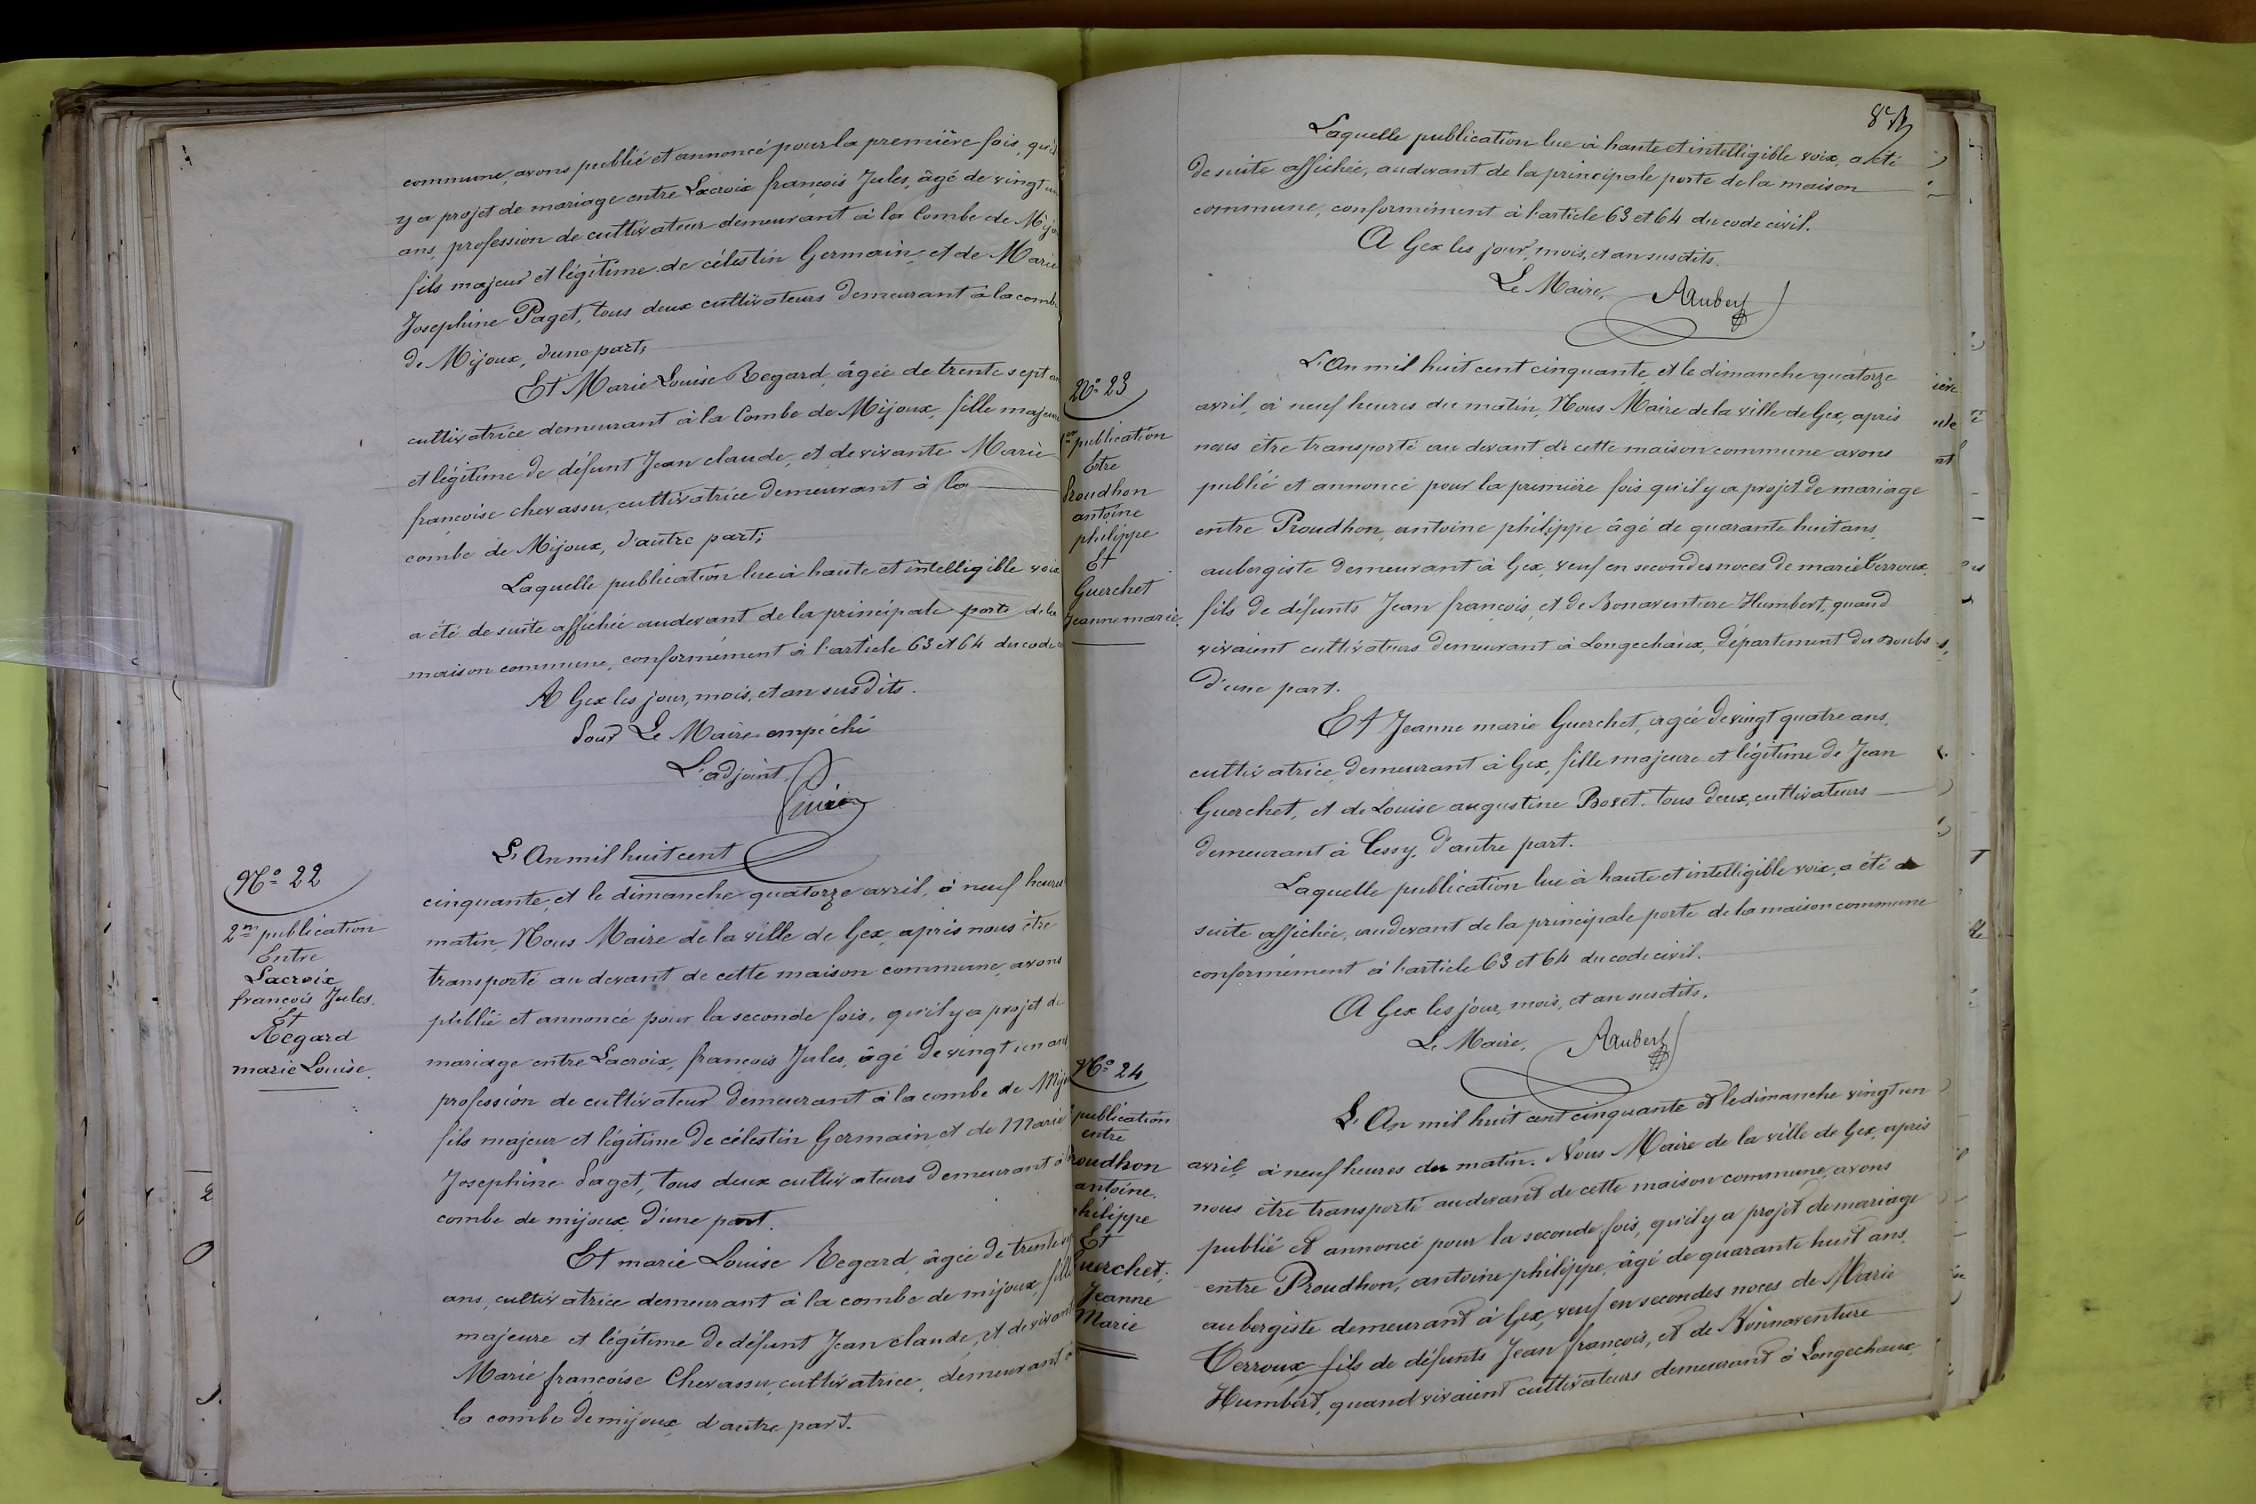 commune, avons publié et annoncé pour la première fois, qu'il
y a projet de mariage entre Lacroix françois Jules, âgé de vingt un
ans, profession de cultivateur demeurant à la Combe de Mijou
fils majeur et légitime de célestin Germain, et de Marie
Josephine Paget, tous deux cultivateurs demeurant à la combe
de Mijoux, d'une part;
Et Marie Louise Regard, âgée de trente sept an
cultivatrice demeurant à la Combe de Mijoux, fille majeure
et légitime de défunt Jean claude, et de vivante Marie
françoise chevassu, cultivatrice demeurant à la
combe de Mijoux, d'autre part;
Laquelle publication lue à haute et intelligible voix
a été de suite affichée audevant de la principale porte de la
maison commune, conformément à l'article 63 et 64 du code
A Gex les jour, mois, et an susdits.
Pour Le Maire empéché
L'adjoint
N° 22
2me publication
Entre
Lacroix
françois Jules.
Et
Regard
marie Louise.
L'An mil huit cent
cinquante, et le dimanche quatorze avril, à neuf heures
matin, Nous Maire de la ville de Gex, après nous être
transporté au devant de cette maison commune, avons
publié et annoncé pour la seconde fois, qu'il y a projet de
mariage entre Lacroix, françois Jules, âgé de vingt un ans
profession de cultivateur demeurant à la combe de Mijou
fils majeur et légitime de célestin Germain et de Marie
Josephine Paget, tous deux cultivateurs demeurant à la
combe de mijoux, d'une part.
Et marie Louise Regard, âgée de trente sept
ans, cultivatrice demeurant à la combe de mijoux, fille
majeure et légitime de défunt Jean claude, et de vivante
Marie françoise Chevassu, cultivatrice, demeurant à
la combe de mijoux, d'autre part.
Laquelle publication lue à haute et intelligible voix, a été
de suite affichée, audevant de la principale porte de la maison
commune, conformément à l'article 63 et 64 du code civil.
A Gex les jour, mois, et an susdits.
Le Maire, AAubert
N° 23
1ere publication
Entre
Proudhon
antoine
philippe
Et
Guerchet
Jeanne marie.
L'An mil huit cent cinquante, et le dimanche quatorze
avril, à neuf heures du matin, Nous Maire de la ville de Gex, après
nous être transporté au devant de cette maison commune avons
publié et annoncé pour la première fois qu'il y a projet de mariage
entre Proudhon, antoine philippe âgé de quarante huit ans,
aubergiste demeurant à Gex, veuf en secondes noces de marie Verroux,
fils de défunts Jean françois, et de Bonaventure Humbert, quand
vivaient cultivateurs demeurant à Longechaux, département du Doubs
d'une part.
Et Jeanne marie Guerchet, agée de vingt quatre ans,
cultivatrice, demeurant à Gex, fille majeure et légitime de Jean
Guerchet, et de Louise augustine Bovet. tous deux cultivateurs
demeurant à Cessy, d'autre part.
Laquelle publication lue à haute et intelligible voix, a été de
suite affichée, audevant de la principale porte de la maison commune
conformément à l'article 63 et 64 du code civil.
A Gex les jour, mois, et an susdits.
Le Maire, AAubert
N° 24
publication
entre
roudhon
antoine.
hilippe
Et
uerchet,
Jeanne
Marie
L'An mil huit cent cinquante et le dimanche vingt un
avril, à neuf heures du matin. Nous Maire de la ville de Gex, après
nous être transporté audevant de cette maison commune, avons
publié et annoncé pour la seconde fois, qu'il y a projet de mariage
entre Proudhon, antoine philippe, âgé de quarante huit ans,
aubergiste demeurant à Gex, veuf en secondes noces de Marie
Verroux, fils de défunts Jean françois, et de Bonnaventure
Humbert, quand vivaient cultivateurs demeurant à Longechaux,